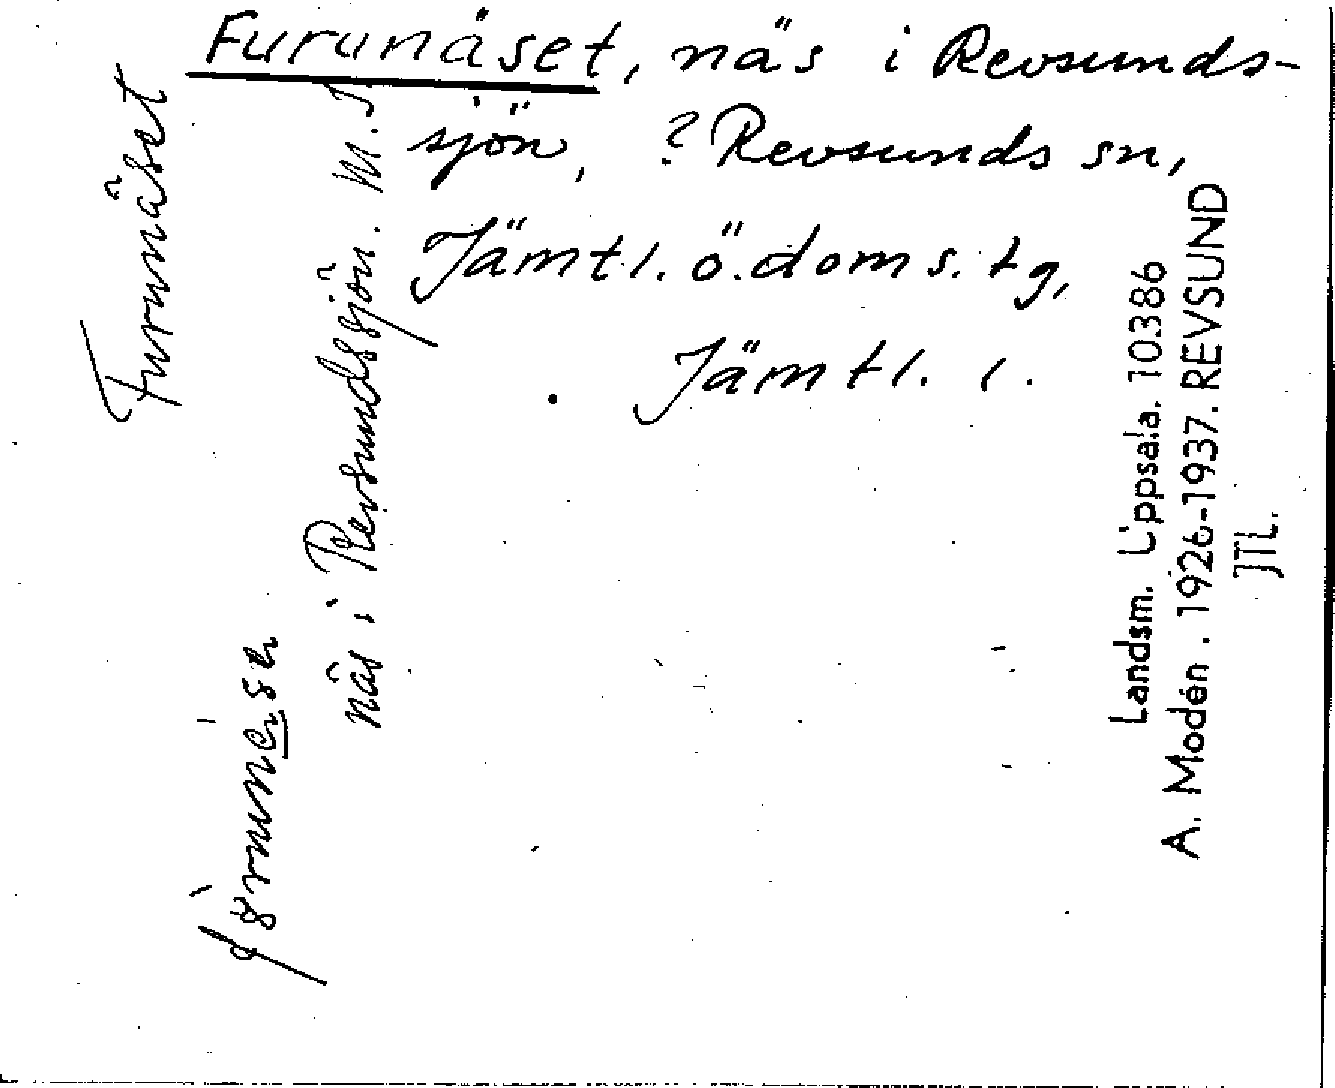 Furunäset, näs i Revsunds-
sjön, ? Revsunds sn,
Jämtl. ö. doms. tg,
Jämtl. l.
Furunäset
näs i Revsundssjön. M.
Landsm. Uppsala. 10386
A. Modén. 1926-1937. REVSUND
JTL.